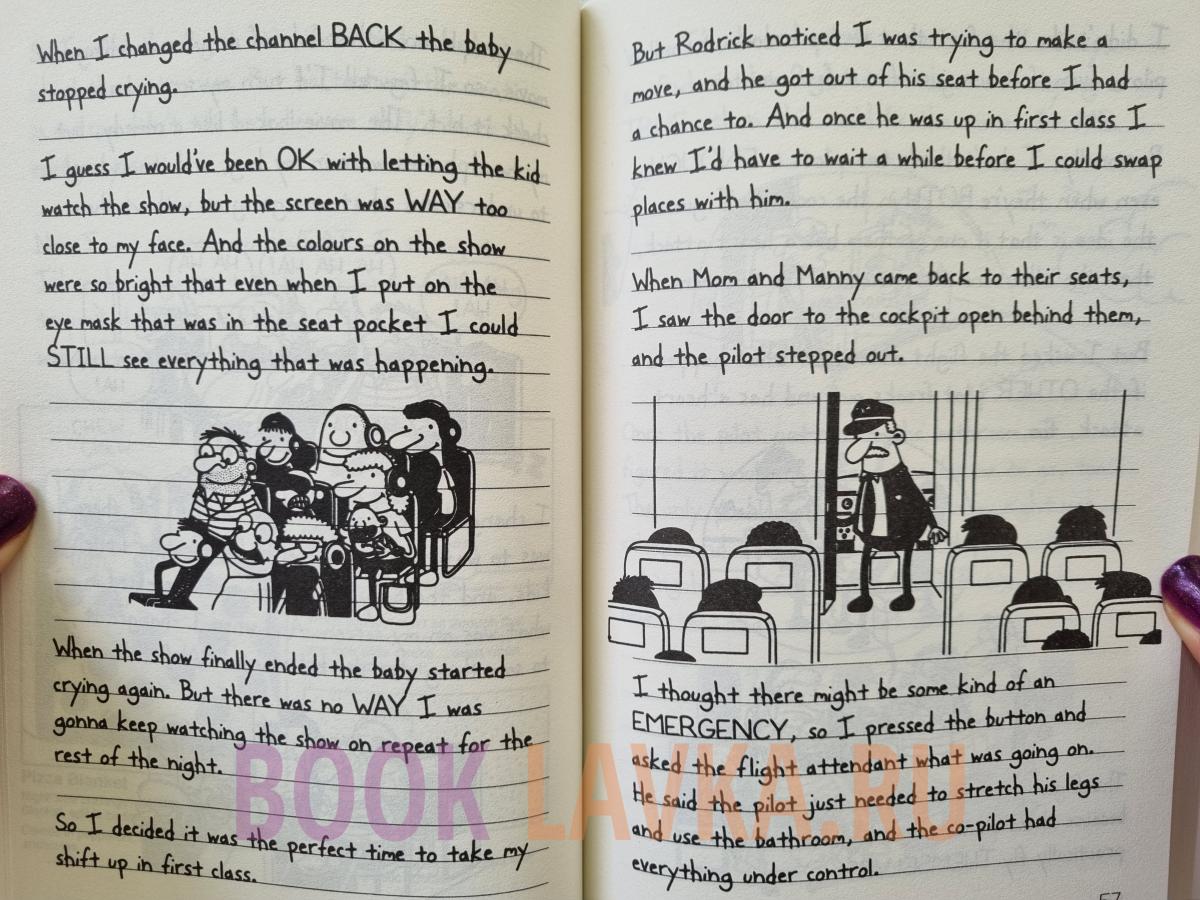 When I changed the channel BACK the baby
stopped crying.
I guess I would've been OK with letting the kid
watch the show, but the screen was WAY too
close to my face. And the colours on the show
were so bright that even when I put on the
eye mask that was in the seat pocket I could
STILL see everything that was happening.
When the show finally ended the baby started
crying again. But there was no WAY I was
gonna keep watching the show on repeat for the
rest of the night.
So I decided it was the perfect time to take my
shift up in first class.
But Rodrick noticed I was trying to make a
move, and he got out of his seat before I had
a chance to. And once he was up in first class I
knew I'd have to wait a while before I could swap
places with him.
When Mom and Manny came back to their seats,
I saw the door to the cockpit open behind them,
and the pilot stepped out.
I thought there might be some kind of an
EMERGENCY, so I pressed the button and
asked the flight attendant what was going on.
He said the pilot just needed to stretch his legs
and use the bathroom, and the co-pilot had
everything under control.
BOOK LAVKA.RU